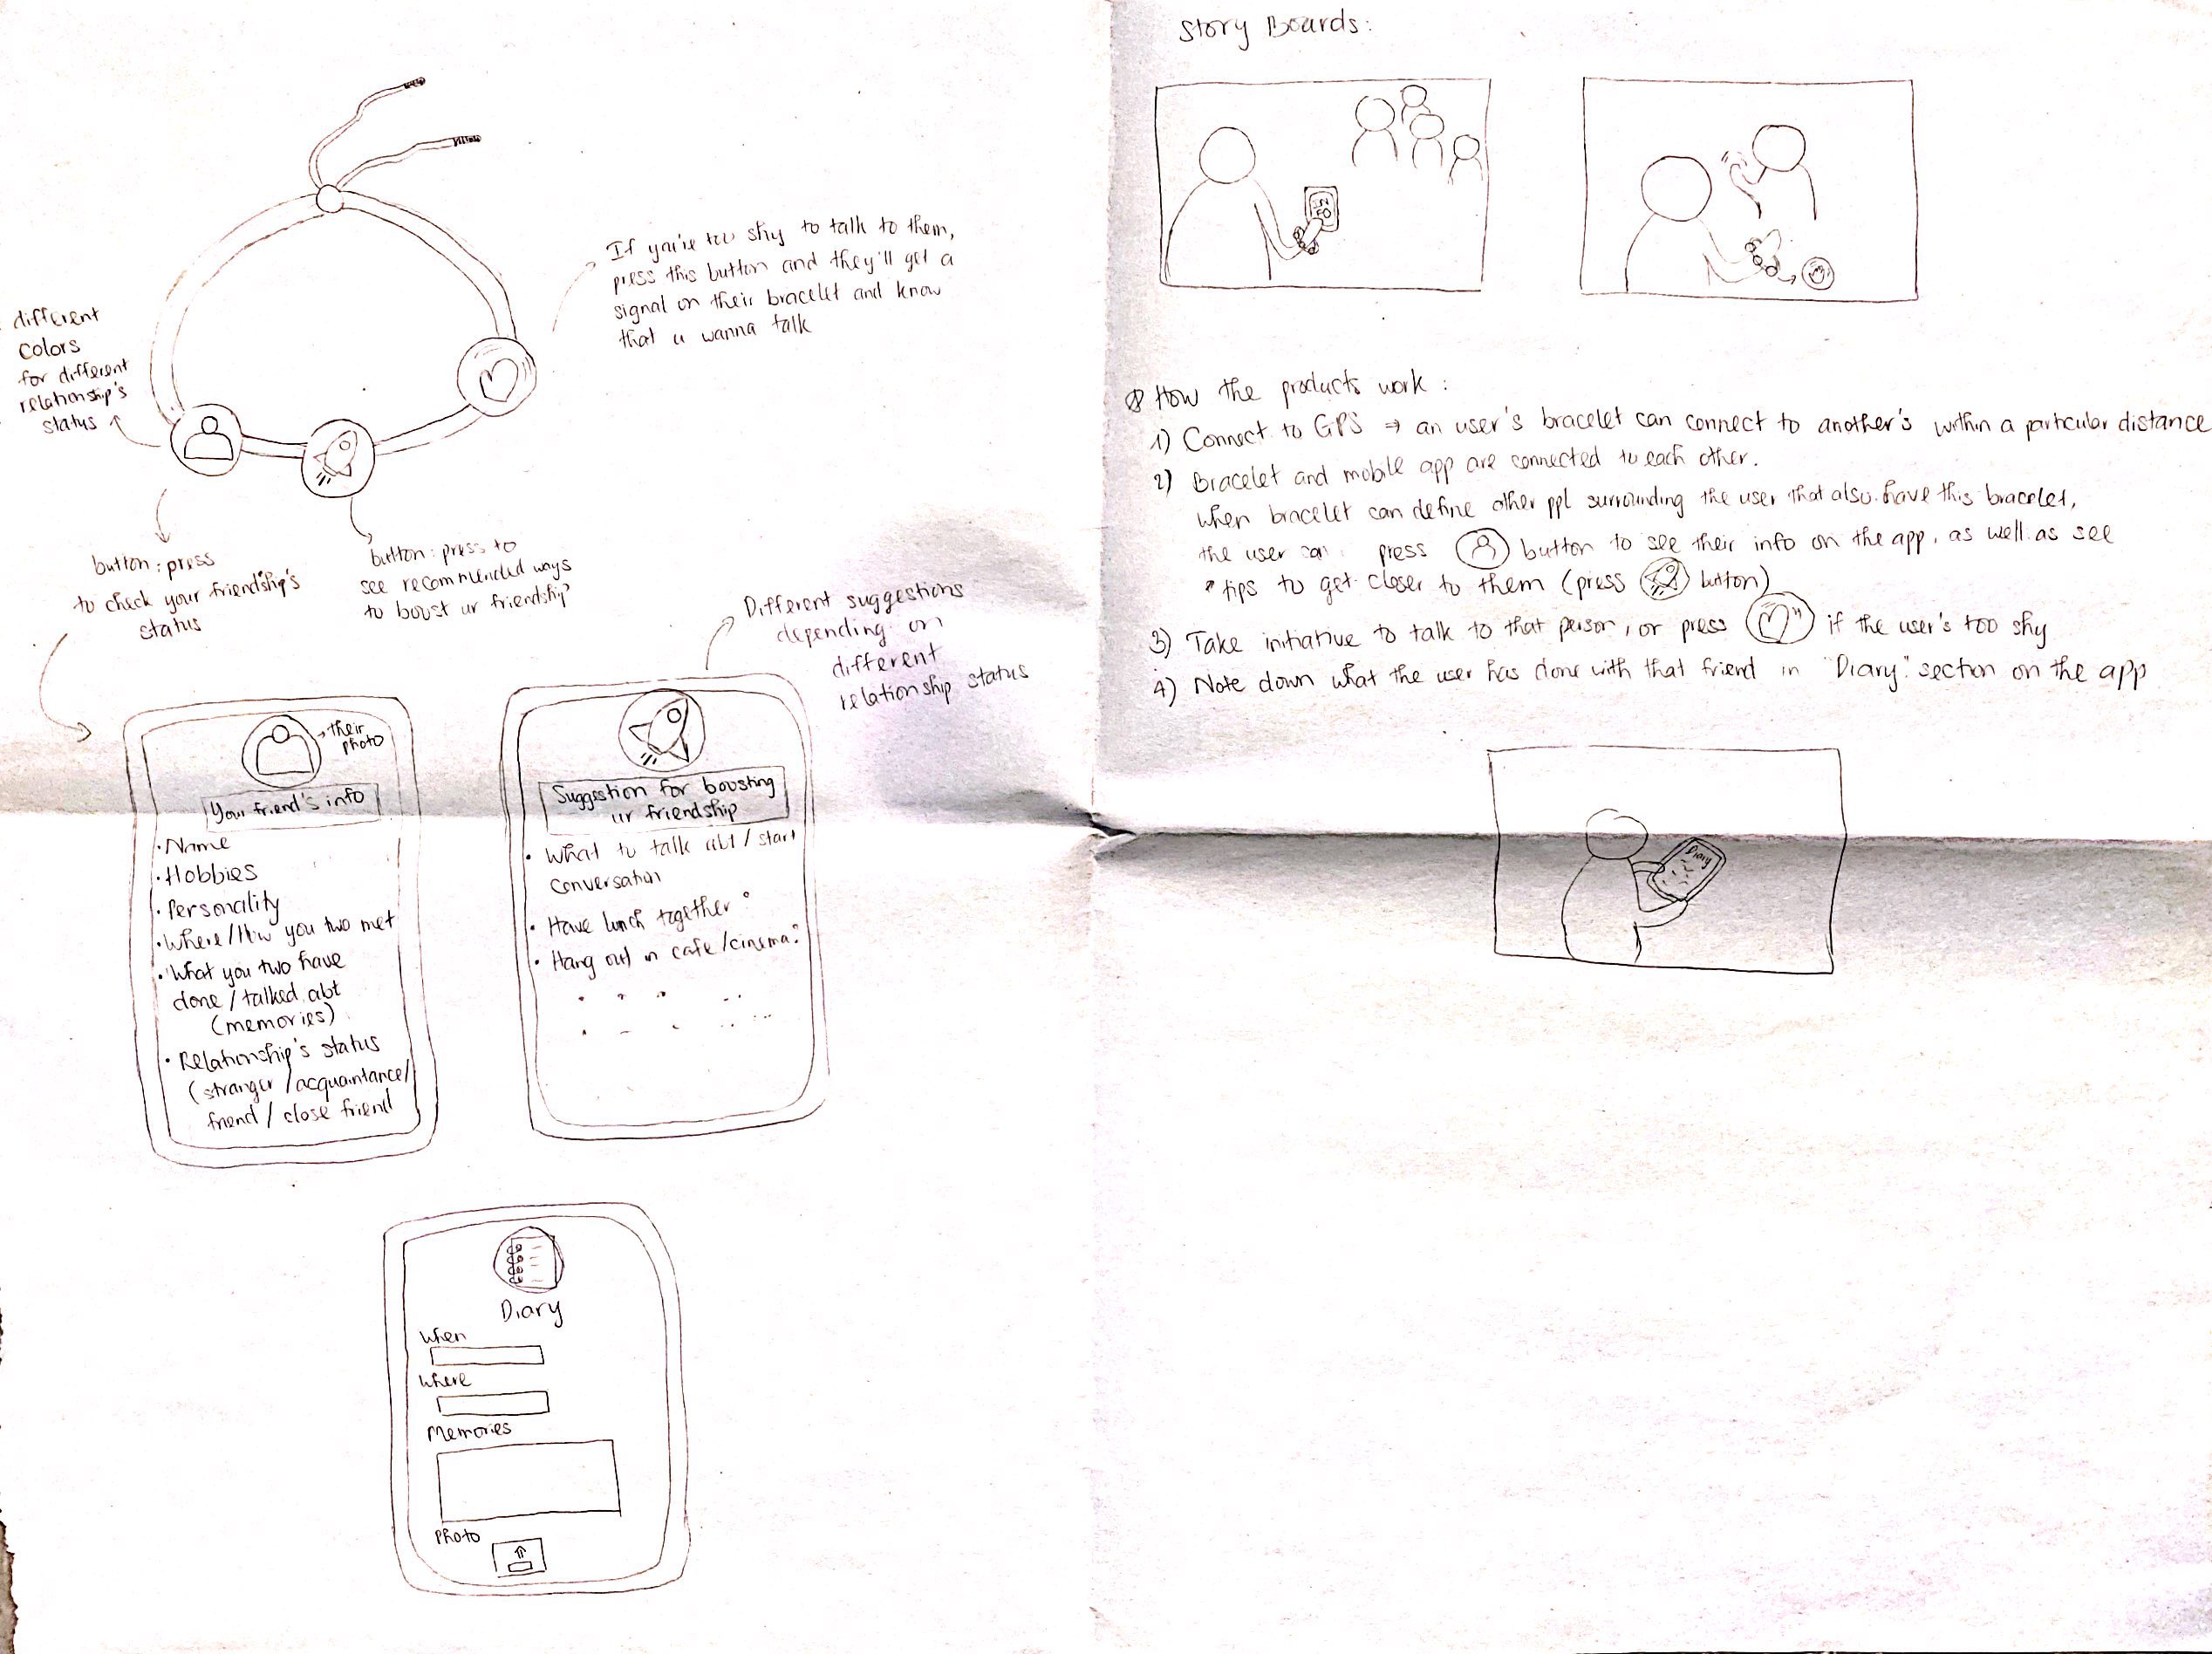 different
colors
for different
relationship's
status
If you're too shy to talk to them,
press this button and they'll get a
signal on their bracelet and know
that u wanna talk
button: press
to check your friendship's
status
button: press to
see recommended ways
to boost ur friendship
Different suggestions
depending on
different
relationship status
their
photo
Your friend's info
• Name
• Hobbies
• Personality
• Where/How you two met
• What you two have
done / talked abt
(memories)
• Relationship's status
(stranger / acquaintance/
friend / close friend
Suggestion for boosting
ur friendship
• What to talk abt / start
conversation
• Have lunch together
• Hang out in cafe/cinema
Diary
When
Where
Memories
Photo
Story Boards:
IN
FO
How the products work:
1) Connect to GPS ⇒ an user's bracelet can connect to another's within a particular distance
2) Bracelet and mobile app are connected to each other.
When bracelet can define other ppl surrounding the user that also have this bracelet,
the user can press button to see their info on the app, as well as see
tips to get closer to them (press button)
3) Take initiative to talk to that person, or press if the user's too shy
4) Note down what the user has done with that friend in "Diary" section on the app
Diary